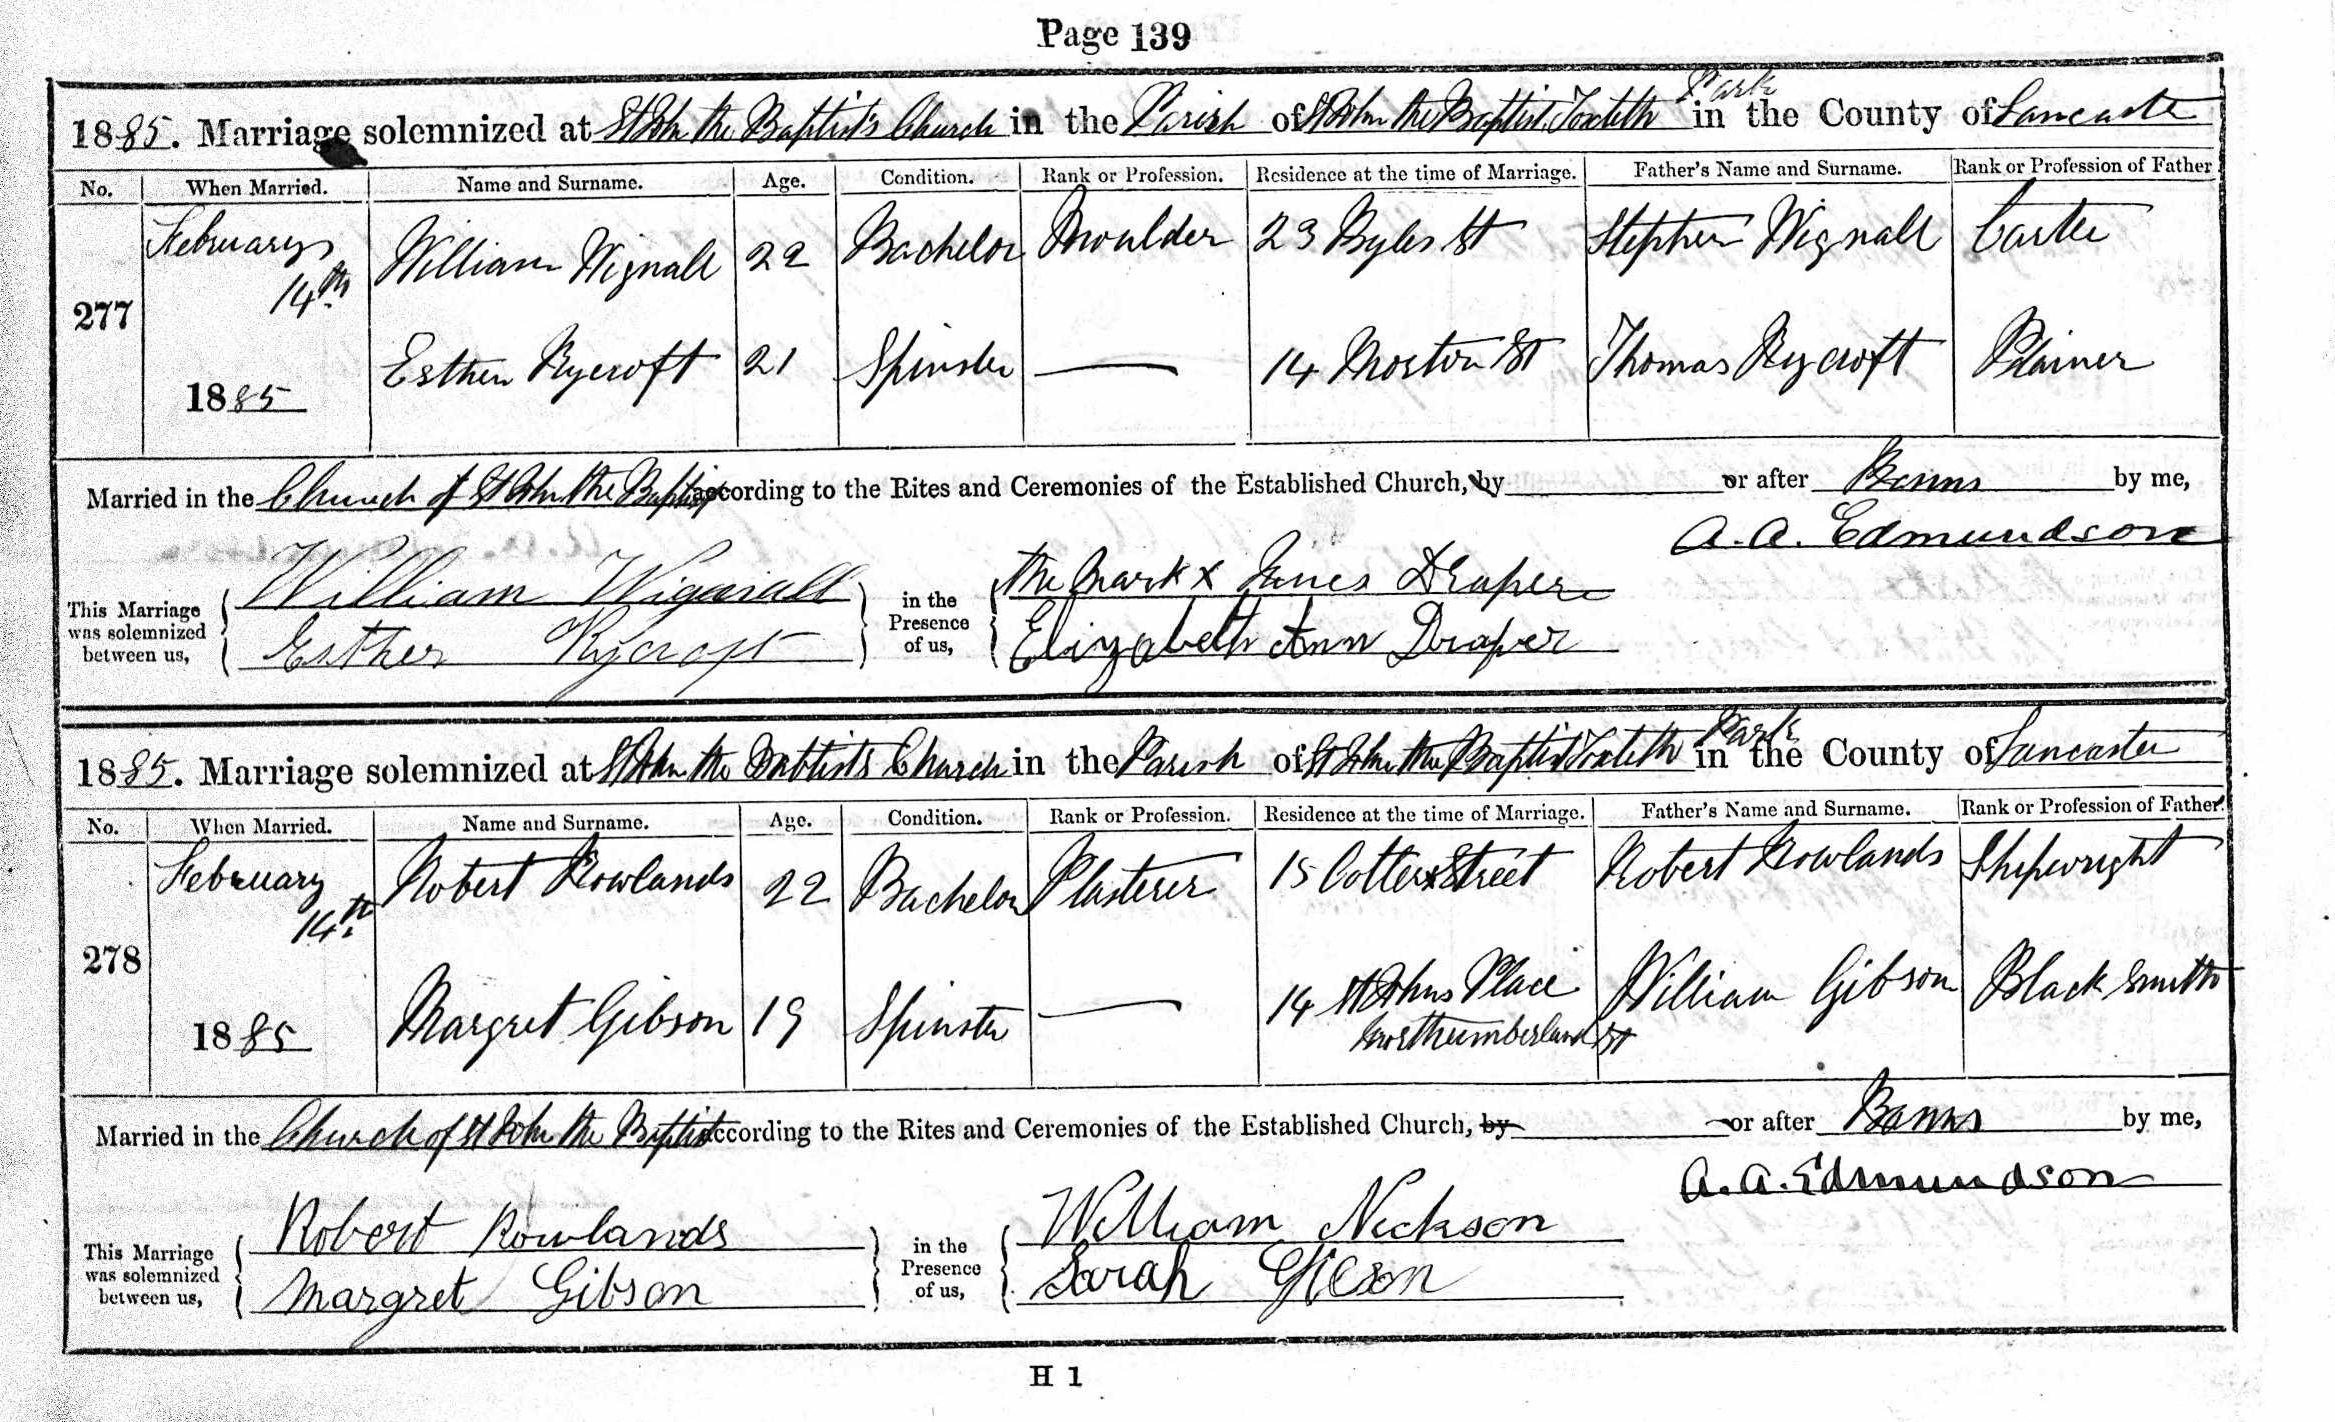 Page 139
1885. Marriage solemnized at St John the Baptist's Church in the Parish of St John the Baptist Toxteth Park in the County of Lancaster
No. When Married. Name and Surname. Age. Condition. Rank or Profession. Residence at the time of Marriage. Father's Name and Surname. Rank or Profession of Father
February 14th William Wignall 22 Bachelor Moulder 23 Byles St Stephen Wignall Carter
277
1885 Esther Rycroft 21 Spinster — 14 Morton St Thomas Rycroft Plainer
Married in the Church of St John the Baptist according to the Rites and Ceremonies of the Established Church, by or after Banns by me,
A. A. Edmundson
This Marriage was solemnized between us, William Wignall in the Presence of us, the mark x James Draper
Esther Rycroft Elizabeth Ann Draper
1885. Marriage solemnized at St John the Baptists Church in the Parish of St John the Baptist Toxteth Park in the County of Lancaster
No. When Married. Name and Surname. Age. Condition. Rank or Profession. Residence at the time of Marriage. Father's Name and Surname. Rank or Profession of Father.
February 14th Robert Rowlands 22 Bachelor Plasterer 15 Cotter Street Robert Rowlands Shipwright
278
1885 Margret Gibson 19 Spinster — 14 St Johns Place Northumberland St William Gibson Black Smith
Married in the Church of St John the Baptist according to the Rites and Ceremonies of the Established Church, by or after Banns by me,
A. A. Edmundson
This Marriage was solemnized between us, Robert Rowlands in the Presence of us, William Nickson
Margret Gibson Sarah Gibson
H 1